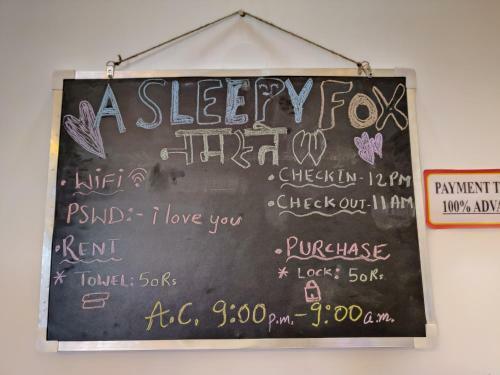 A SLEEPY FOX
नमस्ते
• WiFi
PSWD:- i love you
• CHECKIN - 12 PM
• CHECKOUT - 11 AM
• RENT
* TOWEL: 50Rs
• PURCHASE
* LOCK: 50Rs
A.C. 9:00 p.m. - 9:00 a.m.
PAYMENT
100%